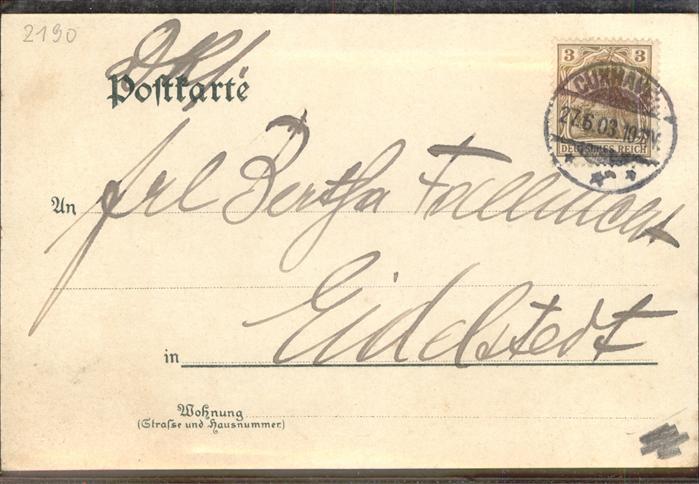 2190
Postkarte
3 3
CUXHAVEN
27.6.03.10-11V.
DEUTSCHES REICH
An frl Bertha
in Eidelstedt
Wohnung
(Strasse und Hausnummer)